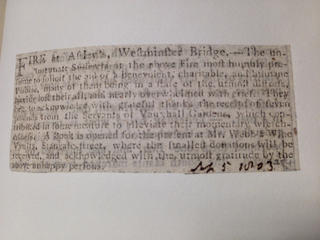 FIRE at Astley's, Westminster Bridge.—The un-
fortunate Sufferers at the above Fire most humbly pre-
sume to solicit the aid of a benevolent, charitable, and humane
Public, many of them being in a state of the utmost distress,
having lost their all, and nearly overwhelmed with grief. They
beg to acknowledge with grateful thanks the receipt of seven
pounds from the Servants of Vauxhall Gardens, which con-
tributed in some measure to alleviate their momentary wretch-
edness. A Book is opened for the present at Mr. Webb's Wine
Vaults, Stangate-street, where the smallest donations will be
received, and acknowledged with the utmost gratitude by the
above unhappy persons.
5 1803